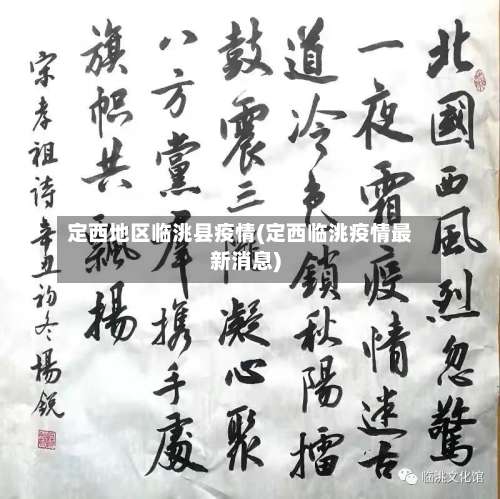 北國西風烈忽驚
一夜霜疫情迷古
道冷色鎖秋陽擂
鼓震三凝心聚
八方黨羣携手處
旗帜共飄揚
宋孝祖詩辛丑初冬楊銳
定西地区临洮县疫情(定西临洮疫情最
新消息)
临洮文化馆